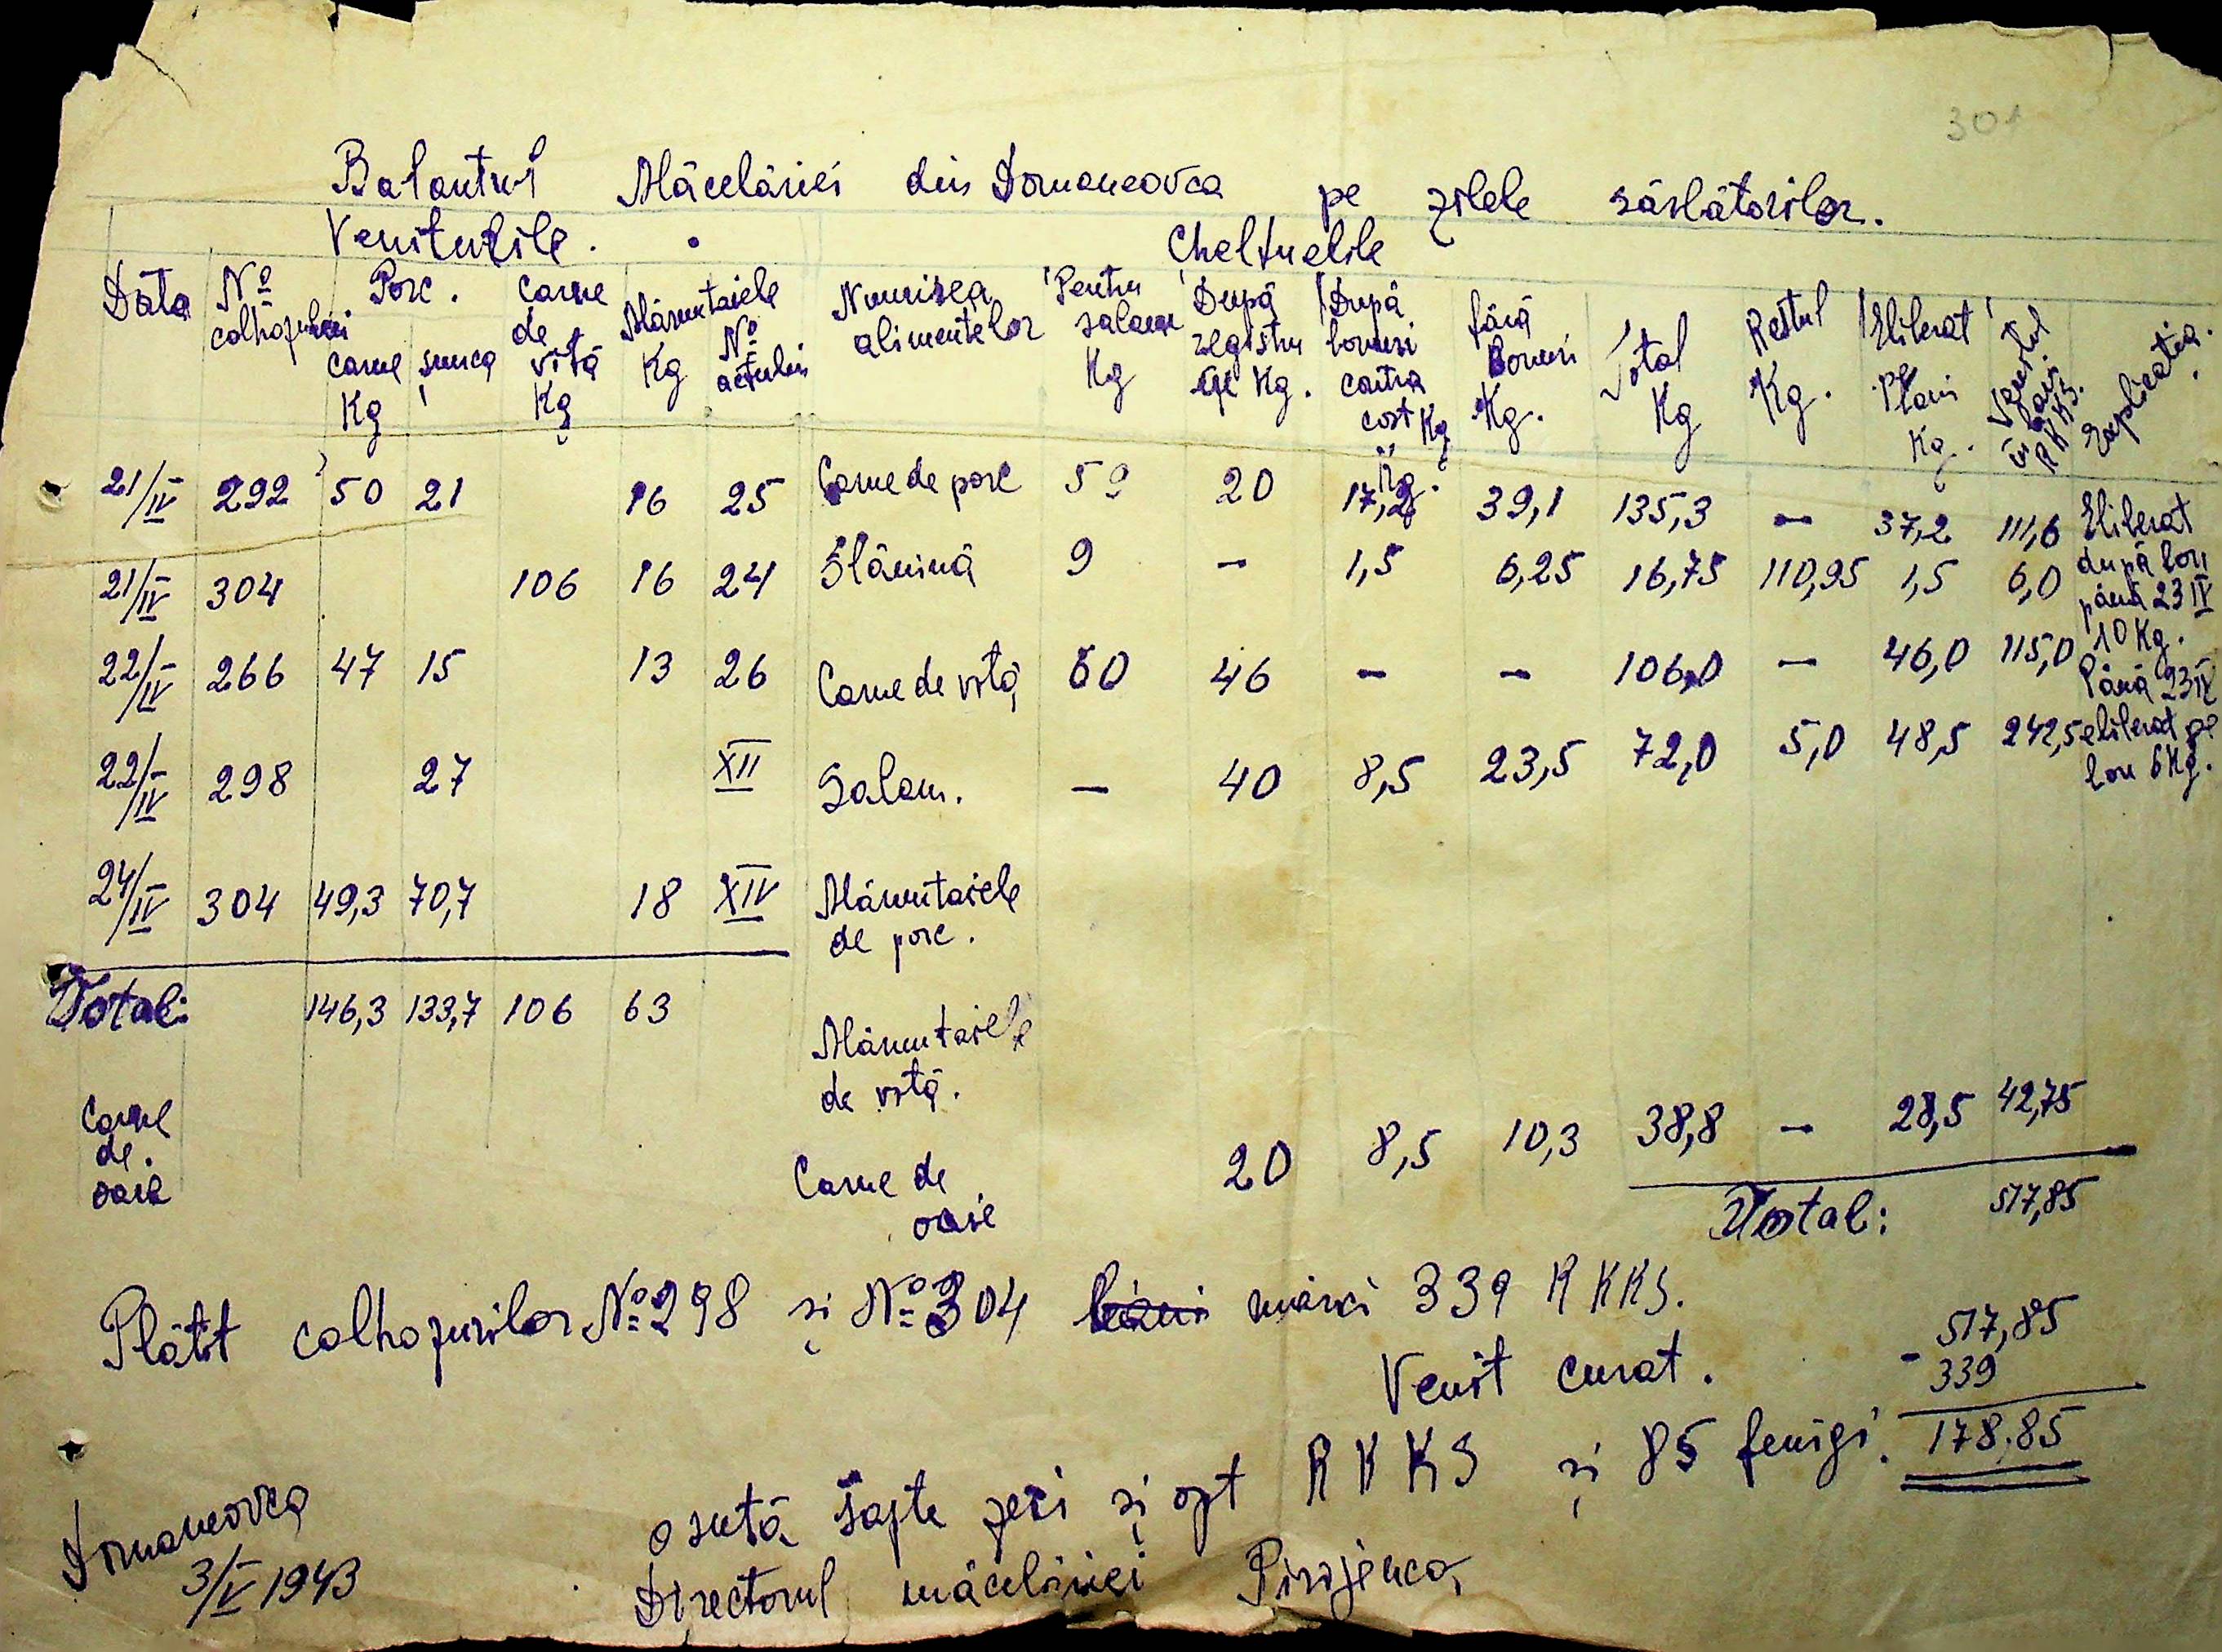 301
Balantul Măcelăriei din Domaneovca pe zilele sărbătorilor.
Veniturile. Cheltuelile
Data Nº colhozului Porc. carne Kg șunca Carne de vită Kg Măruntaiele Kg Nº actului Numirea alimentelor Pentru salam Kg După registru Kg. După bonuri contra cost Kg fără bonuri Kg. Total Kg Restul Kg. Eliberat pe Kg. în RKKS. Explicatia.
21/IV 292 50 21 16 25 Carne de porc 59 20 17,2 39,1 135,3 – 37,2 111,6 Eliberat
după bon
21/IV 304 106 16 24 Slănină 9 – 1,5 6,25 16,75 110,95 1,5 6,0 până 23 IV
10 Kg.
22/IV 266 47 15 13 26 Carne de vită 60 46 – – 106,0 – 46,0 115,0 Până 23 IV
22/IV 298 27 XII Salam. – 40 8,5 23,5 72,0 5,0 48,5 242,5 eliberat pe
bon 6 Kg.
24/IV 304 49,3 70,7 18 XIV Măruntaiele
de porc.
Total: 146,3 133,7 106 63 Măruntaiele
de vită.
Carne
de
oase
Carne de
oase 20 8,5 10,3 38,8 – 28,5 42,75
Total: 517,85
Plătit colhozurilor Nº 298 și Nº 304 mărci 339 RKKS.
517,85
Venit curat. - 339
178,85
o sută șapte zeci și opt RKKS și 85 fenigi.
Domaneovca
3/V 1943
Directorul măcelăriei Pirojenco